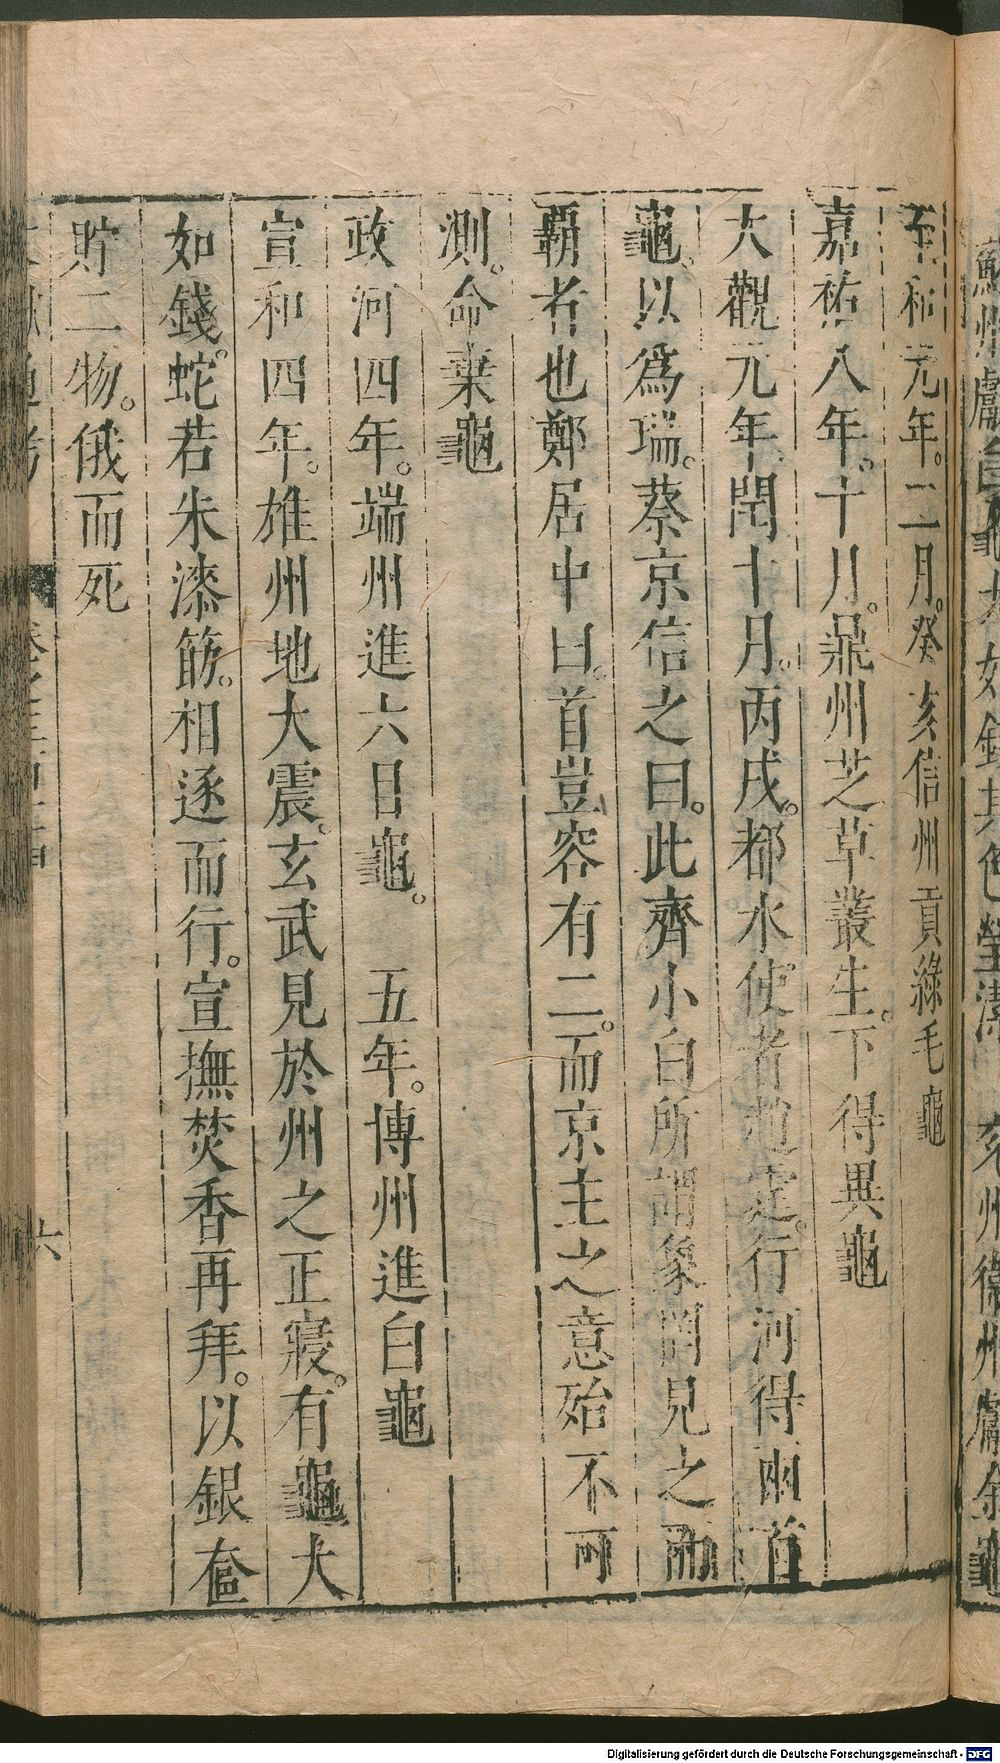 蘇州獻白龜大如錢其色瑩潔 來州衞州獻金龜
至和元年。二月。癸亥信州貢綠毛龜
嘉祐八年。十月。鼎州芝草叢生。下得異龜
大觀元年。閏十月。丙戌。都水使者趙霆。行河得兩首
龜。以爲瑞。蔡京信之曰。此齊小白所謂象罔見之而
霸者也鄭居中曰。首豈容有二。而京主之意殆不可
測。命棄龜
政河四年。端州進六目龜。 五年。博州進白龜
宣和四年。雄州地大震。玄武見於州之正寢。有龜大
如錢。蛇若朱漆筯。相逐而行。宣撫焚香再拜。以銀奩
貯二物。俄而死
六
Digitalisierung gefördert durch die Deutsche Forschungsgemeinschaft - DFG